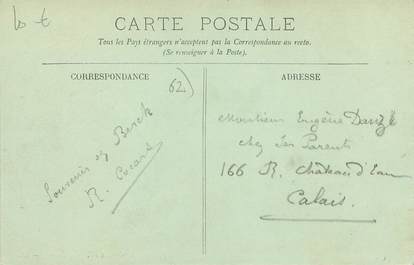 CARTE POSTALE
Tous les Pays étrangers n'acceptent pas la Correspondance au recto.
(Se renseigner à la Poste).
CORRESPONDANCE
ADRESSE
62)
Souvenir de Berck
R.
Monsieur Eugène
chez ses Parents
166 R. Chateau d'Eau
Calais.